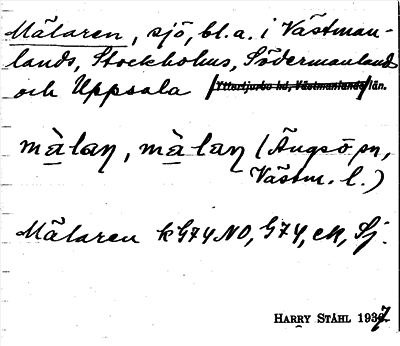 Mälaren, sjö, bl.a. i Västman-
lands, Stockholms, Södermanlands
och Uppsala Yttertjurbo hd, Västmanlands län.
mä̀laɲ, mä̀laɲ (Ängsö sn,
Västm. l.)
Mälaren k G74 NO, G74, ek, Sj.
HARRY STÅHL 1937